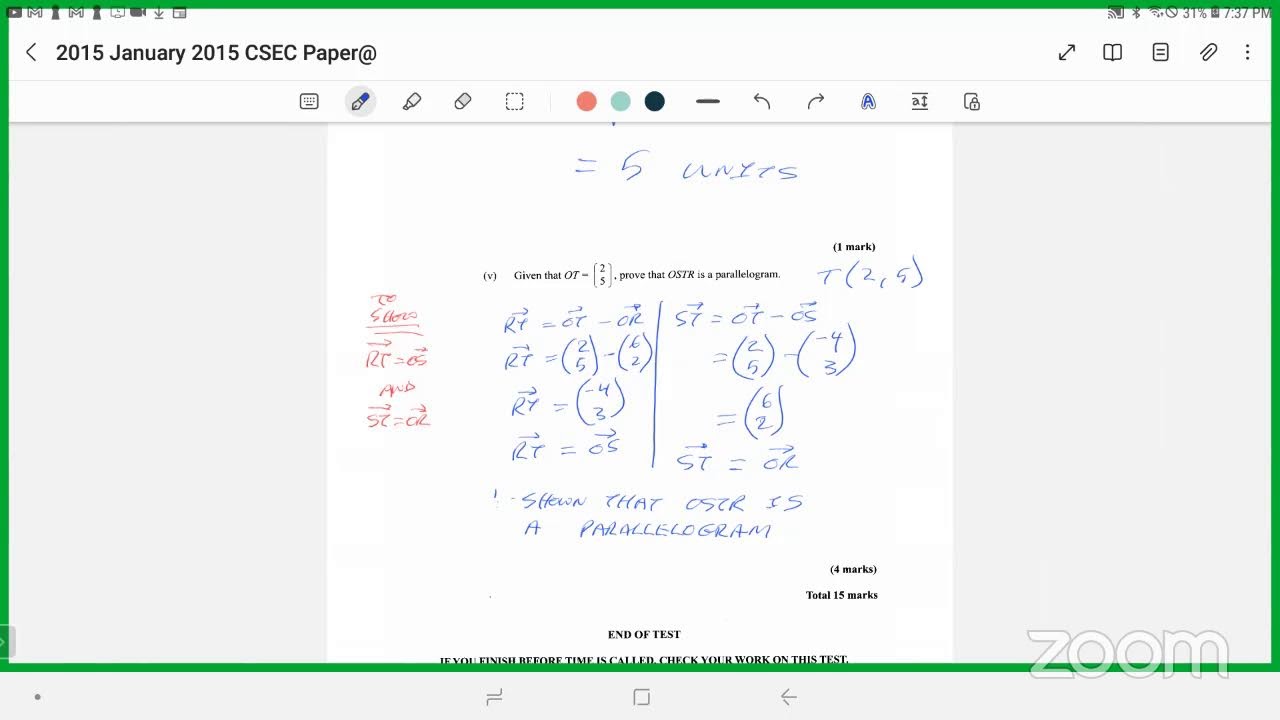 31% 7:37 PM
2015 January 2015 CSEC Paper@
= 5 UNITS
(1 mark)
(v) Given that OT = [2 5], prove that OSTR is a parallelogram.
T(2, 5)
TO
SHOW
RT = OS
AND
ST = OR
RT = OT - OR
RT = (2 5) - (6 2)
RT = (-4 3)
RT = OS
ST = OT - OS
= (2 5) - (-4 3)
= (6 2)
ST = OR
SHOWN THAT OSTR IS
A PARALLELOGRAM
(4 marks)
Total 15 marks
END OF TEST
IF YOU FINISH BEFORE TIME IS CALLED, CHECK YOUR WORK ON THIS TEST.
zoom